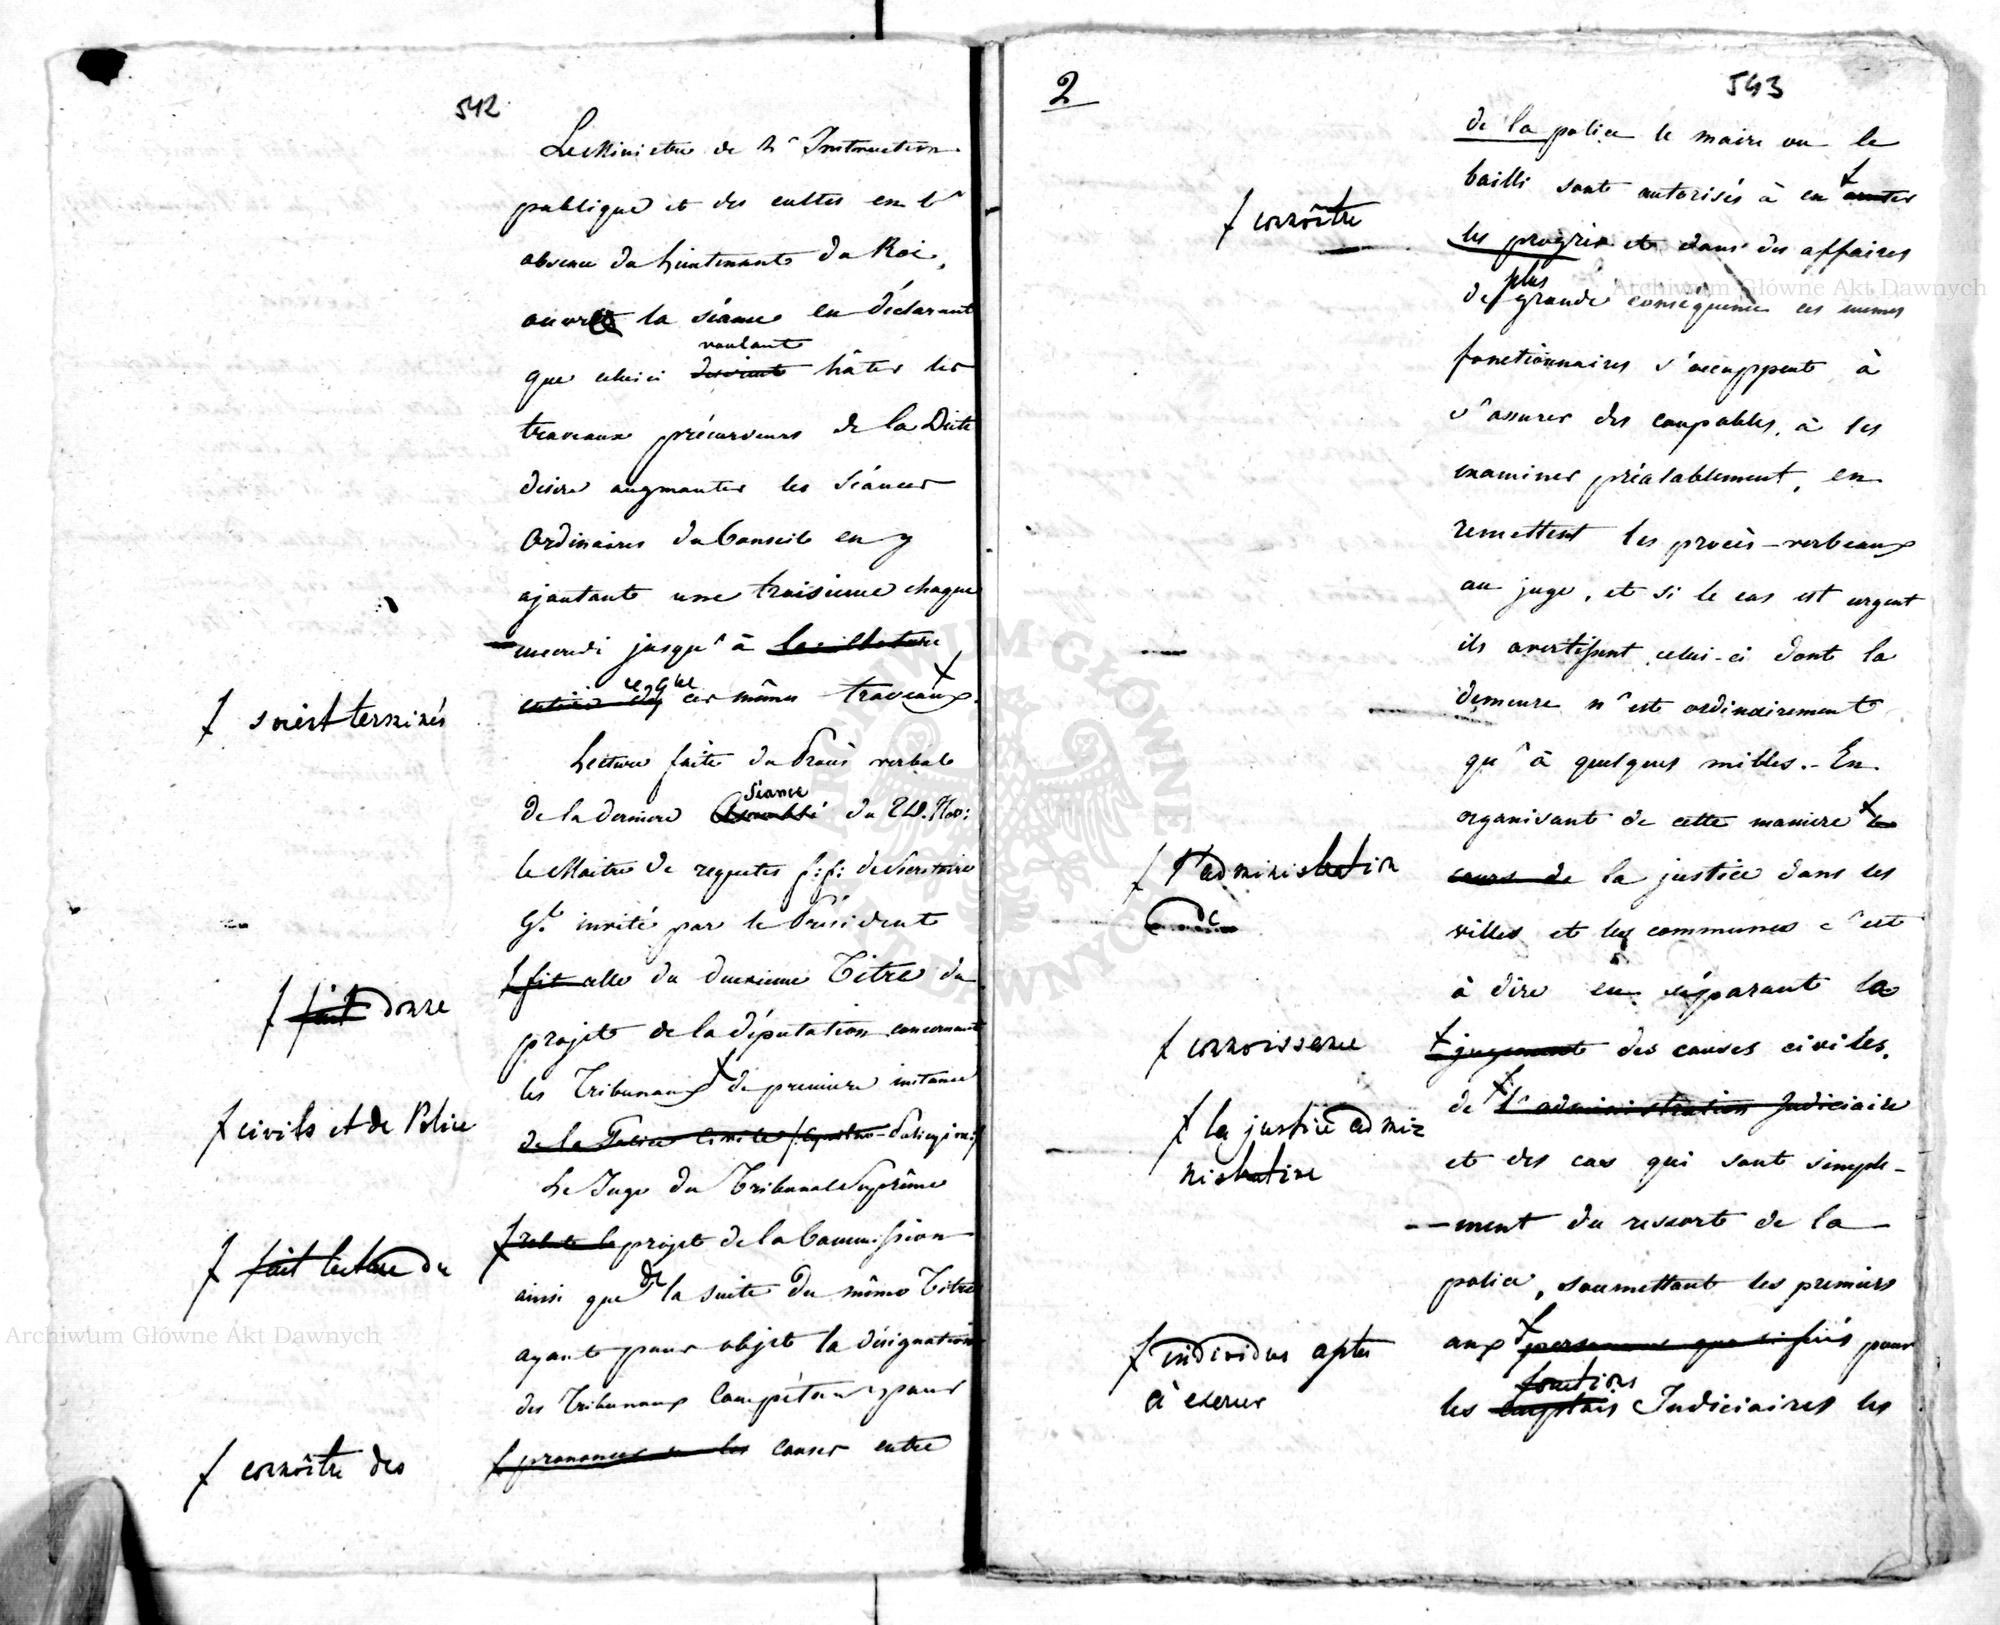 542
Le Ministre de l'Instruction
publique et des cultes en l'
absence du Lieutenant du Roi,
ouvre la séance en déclarant
voulant
que celui ci desirant hâter les
travaux précurseurs de la Diète
desire augmanter les séances
Ordinaires du Conseil en y
ajoutant une troisieme chaque
mecredi jusqu'à la cloture
entière ces mêmes travaux.
ƒ soient terminés
Lecture faite du Procès verbale
Séance
de la derniere Assemblé du 24. Nov:
le Maitre de requetes f:f: de Secretaire
Gl. invité par le Président
fit celle du deuxieme Titre du
ƒ fait donne
projet de la députation concernant
les Tribunaux de premiere instance
ƒ civils et de Police
de la Police Civile
Le Juge du Tribunal Suprême
relate le projet de la Commission
ƒ fait lecture du
ainsi que de la suite du même Titre
ayant pour objet la désignation
des Tribunaux Compétans pour
prononcer les causes entre
ƒ connoître des
2
543
de la police le maire ou le
bailli sont autorisés à en
ƒ connoître
les progrès et dans des affaires
plus
de grande conséquence ces memes
fonctionnaires s'occuppent à
s'assurer des coupables, à les
examiner préalablement, en
remettent les procès-verbeaux
au juge, et si le cas est urgent
ils avertissent celui-ci dont la
demeure n'est ordinairement
qu'à quelques milles.- En
organisant de cette maniere le
ƒ l'administration
de
cours de la justice dans les
villes et les communes c'est
à dire en séparant la
ƒ connoissence
jugement des causes civiles,
de l'administration Judiciaire
ƒ la justice admi
nistrative
et des cas qui sont simple-
-ment du ressort de la
police, soumettant les premiers
aux personnes qualifiés pour
ƒ individus aptes
à exercer
fonctions
les emplois Judiciaires les
Archiwum Główne Akt Dawnych
Archiwum Główne Akt Dawnych
ARCHIWUM GŁÓWNE AKT DAWNYCH